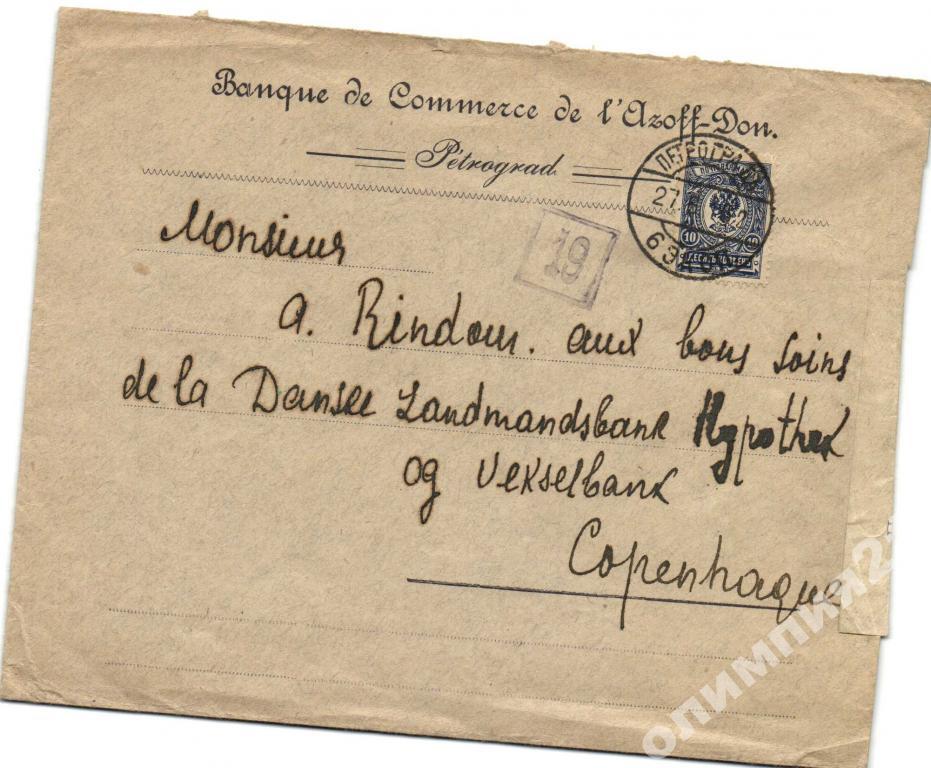 Banque de Commerce de l'Azoff-Don.
Pétrograd
ПЕТРОГРАД
27.
10 10
ДЕСЯТЬ КОПѢЕКЪ
19
Monsieur
A. Rindom. aux bons soins
de la Danske Landmandsbank Hypothek
og Vekselbank
Copenhague
олимпии2